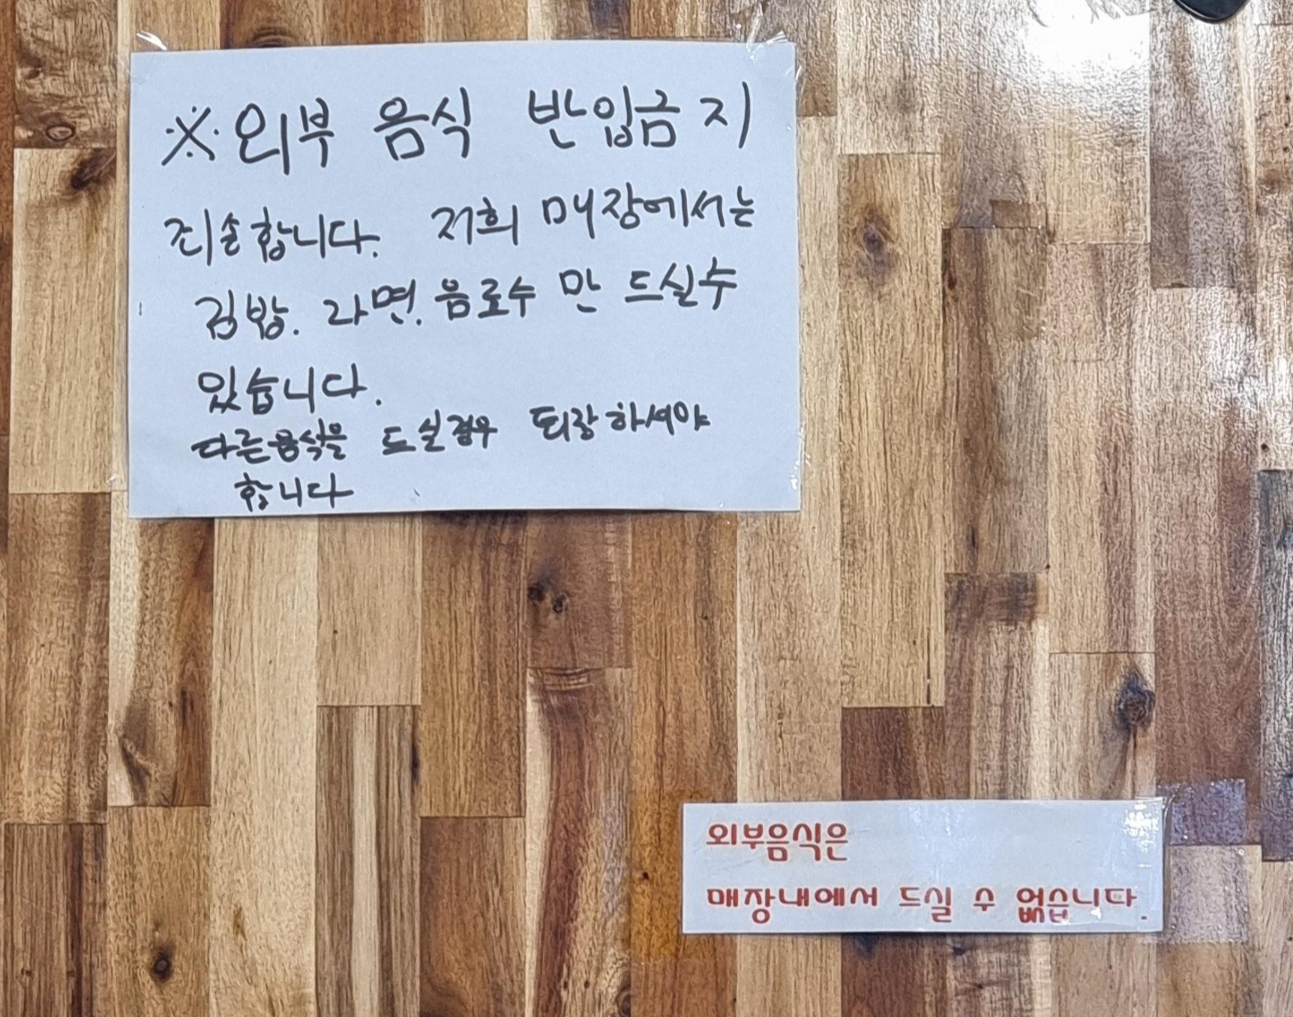 ※외부 음식 반입금지
죄송합니다. 저희 매장에서는
김밥. 라면.음료수 만 드실수
있습니다.
다른음식을 드실경우 퇴장하셔야
합니다
외부음식은
매장내에서 드실 수 없습니다.